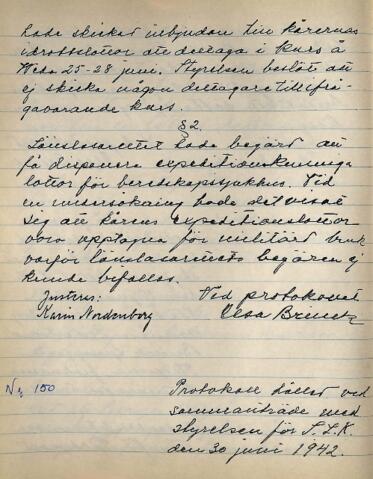 hade skickat inbjudan till kårernas
idrottslottor att deltaga i kurs å
Weda 25-28 juni. Styrelsen beslöt att
ej skicka någon deltagare till ifrå-
gavarande kurs.
§ 2.
Länslasarettet hade begärd att
få disponera expeditionskunniga
lottor för beredskapssjukhus. Vid
en undersökning hade det visat
sig att kårens expeditionslottor
voro upptagna för militärd bruk
varför länslasarettets begäran ej
kunde bifallas.
Justeras: Ved protokollet
Karin Nordenborg Elsa
No 150 Protokoll hållet vid
sammanträde med
styrelsen för S.L.K.
den 30 juni 1942.